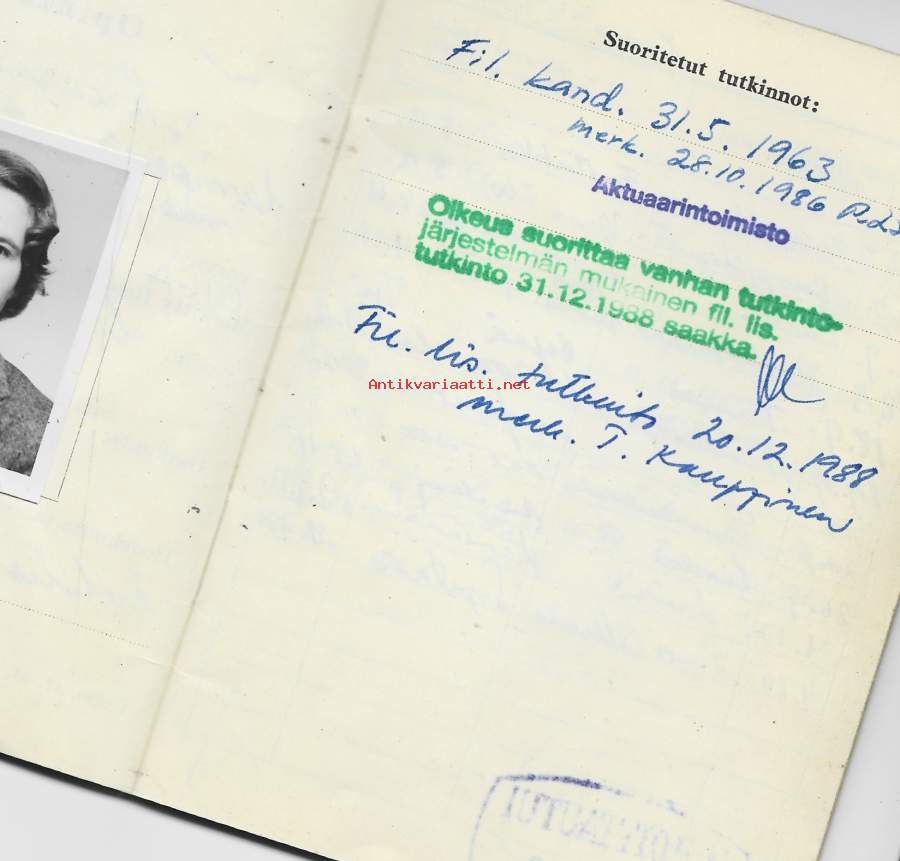 Suoritetut tutkinnot:
Fil. kand. 31.5. 1963
merk. 28.10.1986
Aktuaarintoimisto
Oikeus suorittaa vanhan tutkinto-
järjestelmän mukainen fil. lis.
tutkinto 31.12.1988 saakka.
Fil. lis. tutkinto 20.12.1988
merk. T. Kauppinen
Antikvariaatti.net